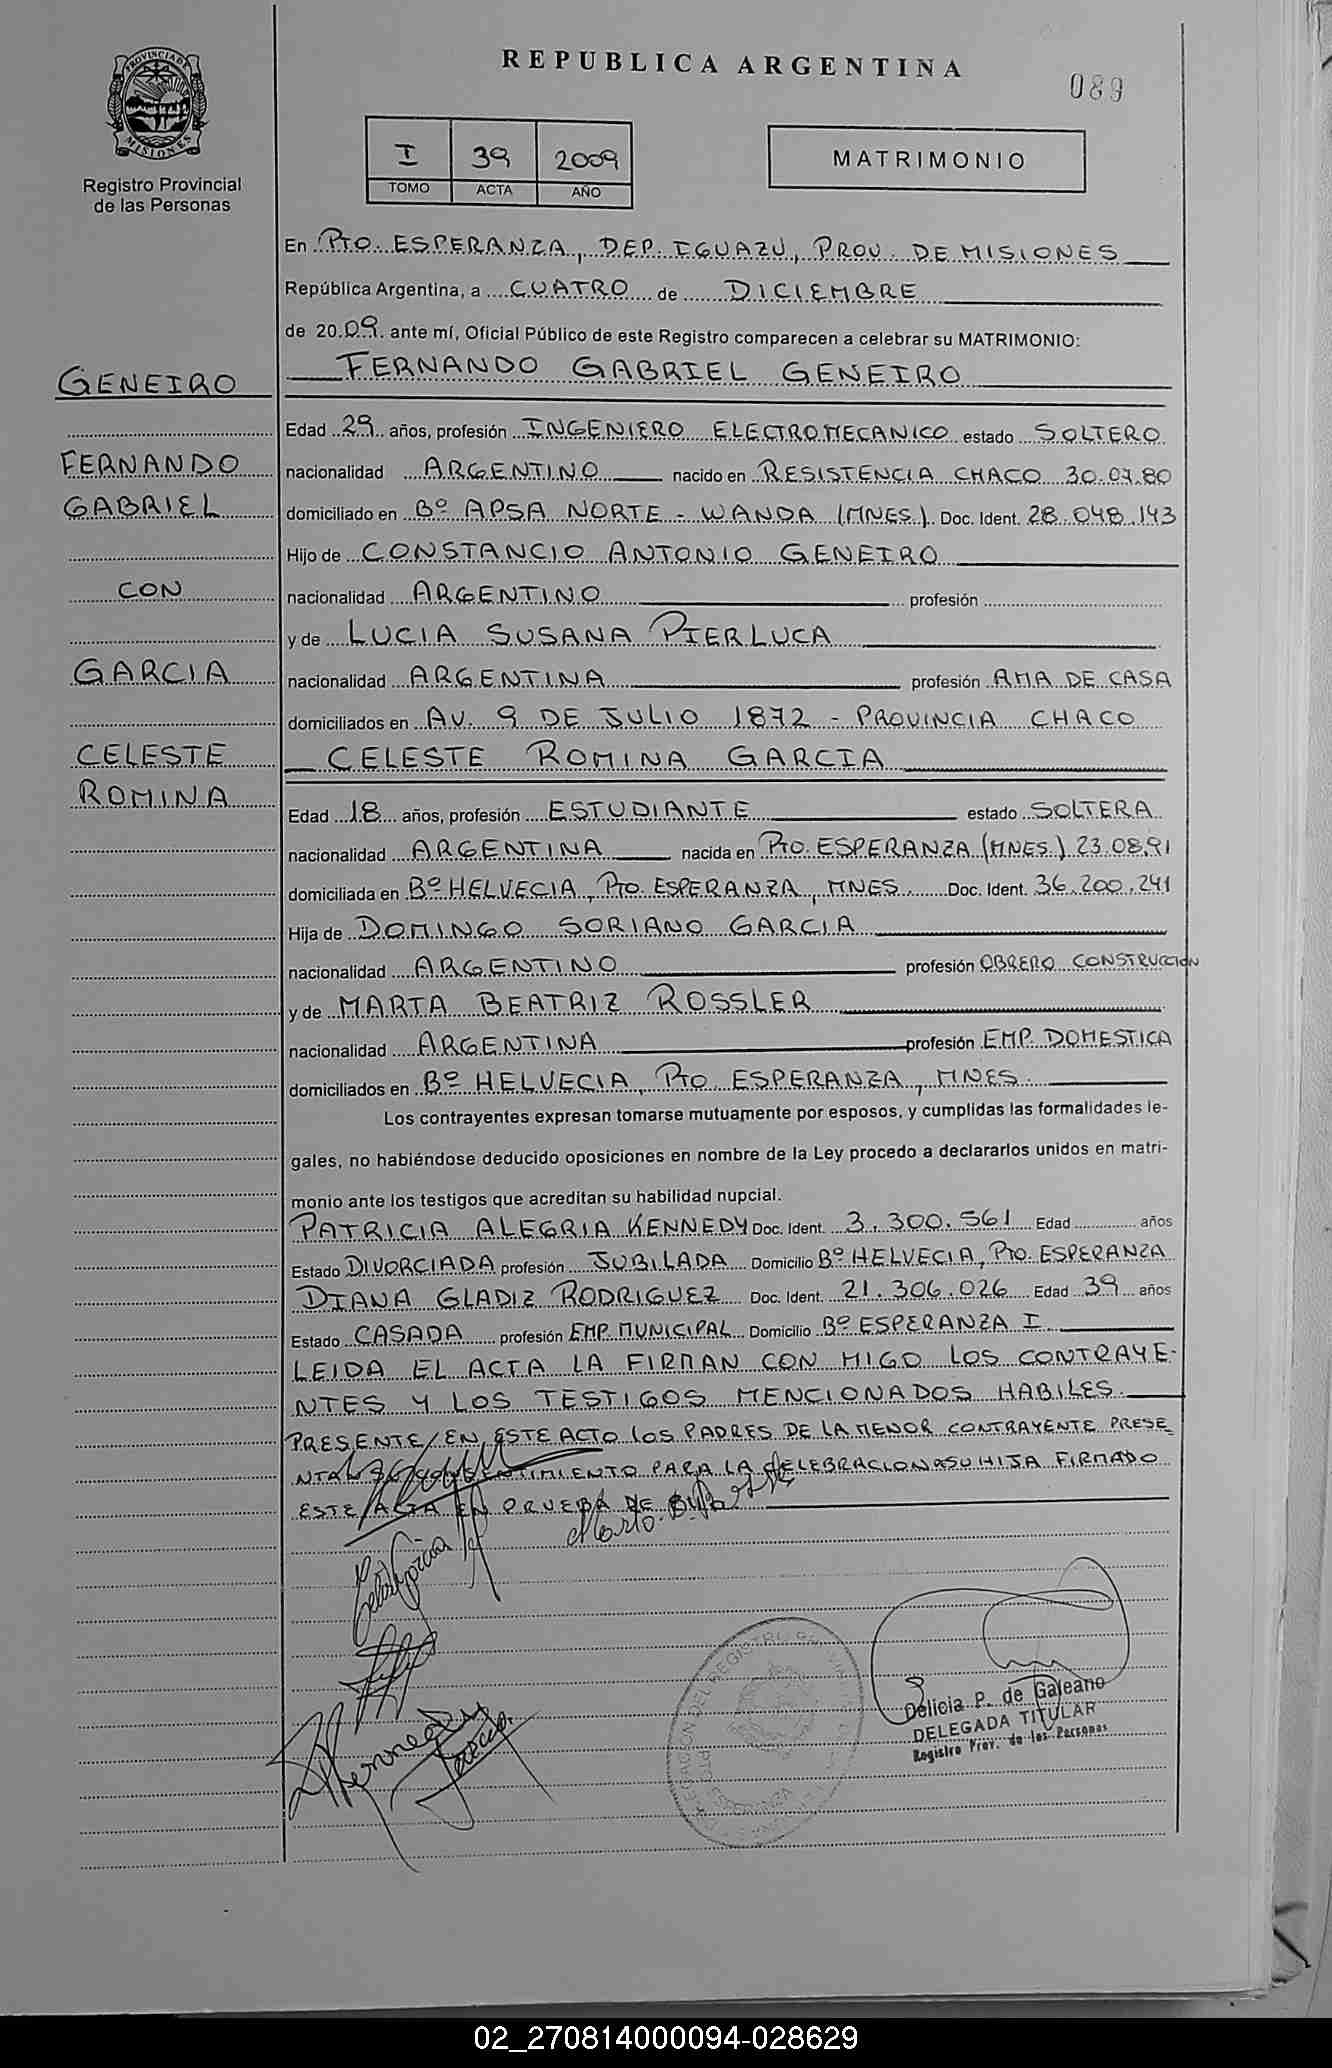 REPUBLICA ARGENTINA
089
PROVINCIA DE MISIONES
Registro Provincial
de las Personas
I 39 2009
TOMO ACTA AÑO
MATRIMONIO
En PTO. ESPERANZA, DEP. IGUAZU, PROV. DE MISIONES
República Argentina, a CUATRO de DICIEMBRE
de 2009. ante mí, Oficial Público de este Registro comparecen a celebrar su MATRIMONIO:
GENEIRO FERNANDO GABRIEL GENEIRO
Edad 29 años, profesión INGENIERO ELECTROMECANICO estado SOLTERO
FERNANDO nacionalidad ARGENTINO nacido en RESISTENCIA CHACO 30.07.80
GABRIEL domiciliado en Bº APSA NORTE - WANDA (MNES.). Doc. Ident. 28.048.143
Hijo de CONSTANCIO ANTONIO GENEIRO
CON nacionalidad ARGENTINO profesión
y de LUCIA SUSANA PIERLUCA
GARCIA nacionalidad ARGENTINA profesión AMA DE CASA
domiciliados en AV. 9 DE JULIO 1872 - PROVINCIA CHACO
CELESTE CELESTE ROMINA GARCIA
ROMINA Edad 18 años, profesión ESTUDIANTE estado SOLTERA
nacionalidad ARGENTINA nacida en PTO. ESPERANZA (MNES.) 23.08.91
domiciliada en Bº HELVECIA, PTO. ESPERANZA, MNES. Doc. Ident. 36.200.241
Hija de DOMINGO SORIANO GARCIA
nacionalidad ARGENTINO profesión OBRERO CONSTRUCCION
y de MARTA BEATRIZ ROSSLER
nacionalidad ARGENTINA profesión EMP. DOMESTICA
domiciliados en Bº HELVECIA, PTO ESPERANZA, MNES.
Los contrayentes expresan tomarse mutuamente por esposos, y cumplidas las formalidades le-
gales, no habiéndose deducido oposiciones en nombre de la Ley procedo a declararlos unidos en matri-
monio ante los testigos que acreditan su habilidad nupcial.
PATRICIA ALEGRIA KENNEDY Doc. Ident. 3.300.561 Edad años
Estado DIVORCIADA profesión JUBILADA Domicilio Bº HELVECIA, PTO. ESPERANZA
DIANA GLADIZ RODRIGUEZ Doc. Ident. 21.306.026 Edad 39 años
Estado CASADA profesión EMP. MUNICIPAL Domicilio Bº ESPERANZA I
LEIDA EL ACTA LA FIRMAN CON MIGO LOS CONTRAYE-
NTES Y LOS TESTIGOS MENCIONADOS HABILES.
PRESENTE EN ESTE ACTO LOS PADRES DE LA MENOR CONTRAYENTE PRESE
PARA LA CELEBRACION A SU HIJA FIRMADO
ESTE ACTA EN PRUEBA DE
Delicia P. de Galeano
DELEGADA TITULAR
Registro Prov. de las Personas
02_270814000094-028629